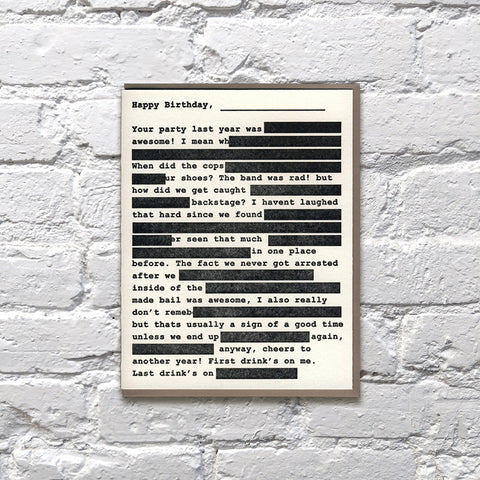 Happy Birthday, ______________
Your party last year was
awesome! I mean wh
When did the cops
ur shoes? The band was rad! but
how did we get caught
backstage? I havent laughed
that hard since we found
er seen that much
in one place
before. The fact we never got arrested
after we
inside of the
made bail was awesome, I also really
don't remeb
but thats usually a sign of a good time
unless we end up again,
anyway, cheers to
another year! First drink's on me.
Last drink's on